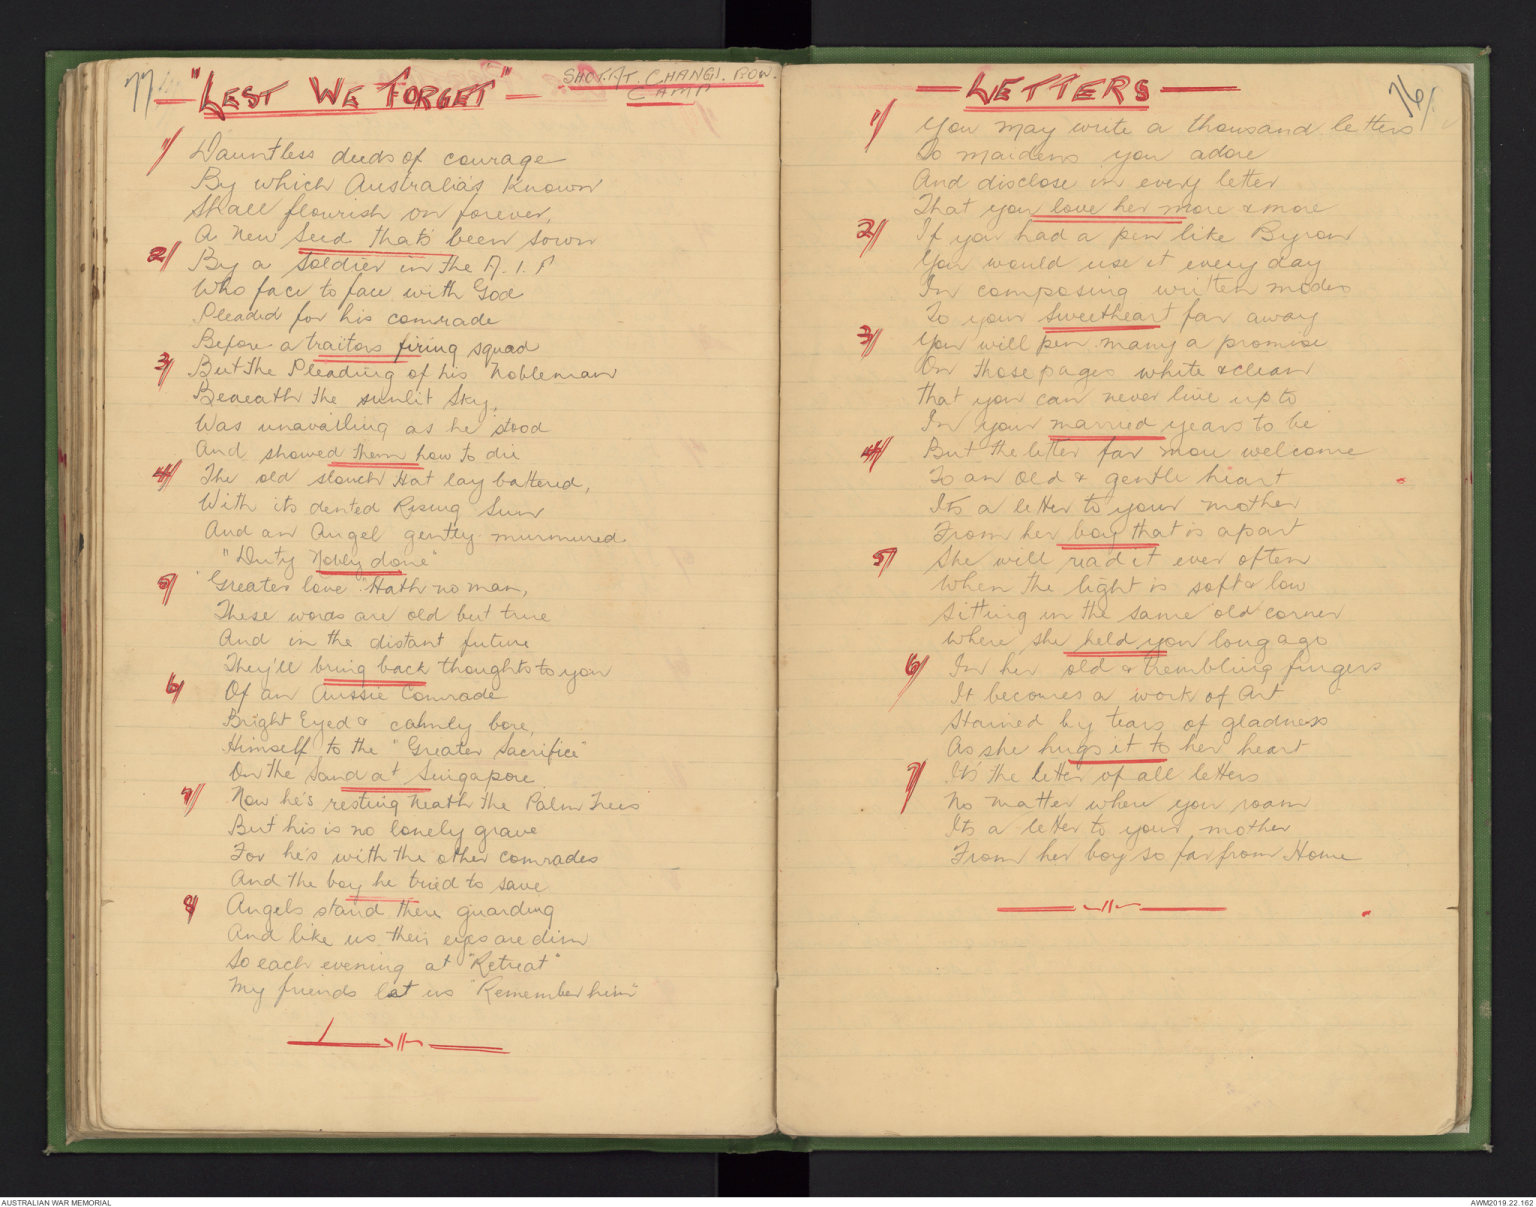 77
"LEST WE FORGET"
SHOT. AT. CHANGI. POW.
CAMP
1/ Dauntless deeds of courage
By which Australia's Known
Shall flourish on forever,
A New Seed that's been sown
2/ By a Soldier in the A.I.F
Who face to face with God
Pleaded for his comrade
Before a traitors firing squad
3/ But the Pleading of his Nobleman
Beneath the sunlit sky,
Was unavailing as he stood
And showed them how to die
4/ The old slouch Hat lay battered,
With its dented Rising Sun
And an Angel gently murmured
"Duty Nobly done"
5/ "Greater love" Hath no man,
These words are old but true
And in the distant future
They'll bring back thoughts to you
6/ Of an Aussie Comrade
Bright Eyed & calmly bore,
Himself to the "Greater Sacrifice"
On the Sand at Singapore
7/ Now he's resting Neath the Palm Trees
But his is no lonely grave
For he's with the other comrades
And the boy he tried to save
8/ Angels stand there guarding
And like us their eyes are dim
So each evening at "Retreat"
My friends let us "Remember him"
76/
LETTERS
1/ You may write a thousand letters
To maidens you adore
And disclose in every letter
That you love her more & more
2/ If you had a pen like Byron
You would use it every day
In composing written modes
To your Sweetheart far away
3/ You will pen many a promise
On those pages white & clean
That you can never live up to
In your married years to be
4/ But the letter far more welcome
To an old & gentle heart
Its a letter to your mother
From her boy that is apart
5/ She will read it ever often
When the light is soft & low
Sitting in the same old corner
Where she held you long ago
6/ In her old & trembling fingers
It becomes a work of Art
Stained by tears of gladness
As she hugs it to her heart
7/ Its the letter of all letters
No matter where you roam
Its a letter to your mother
From her boy so far from Home
AUSTRALIAN WAR MEMORIAL
AWM2019.22.162